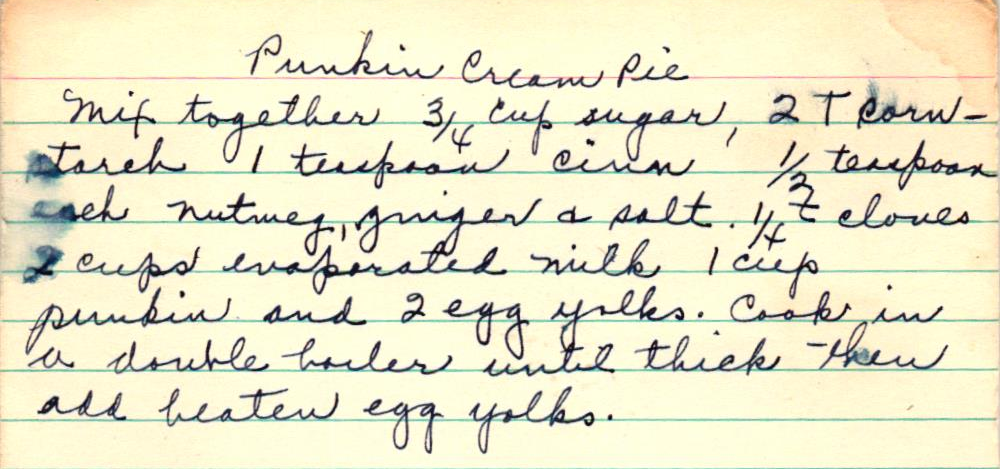 Punkin Cream Pie
Mix together 3/4 cup sugar, 2 T corn-
starch 1 teaspoon cinn 1/2 teaspoon
each nutmeg, ginger & salt. 1/4 t cloves
2 cups evaporated milk 1 cup
punkin and 2 egg yolks. Cook in
a double boiler until thick then
add beaten egg yolks.